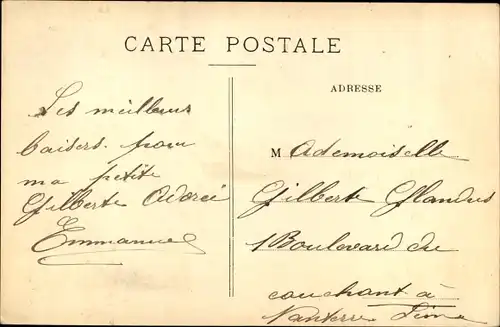 CARTE POSTALE
Les meilleurs
baisers pour
ma petite
Gilberte Adorée
Emmanuel
ADRESSE
Mademoiselle
Gilberte Glandus
1 Boulevard du
couchant à
Nanterre Seine